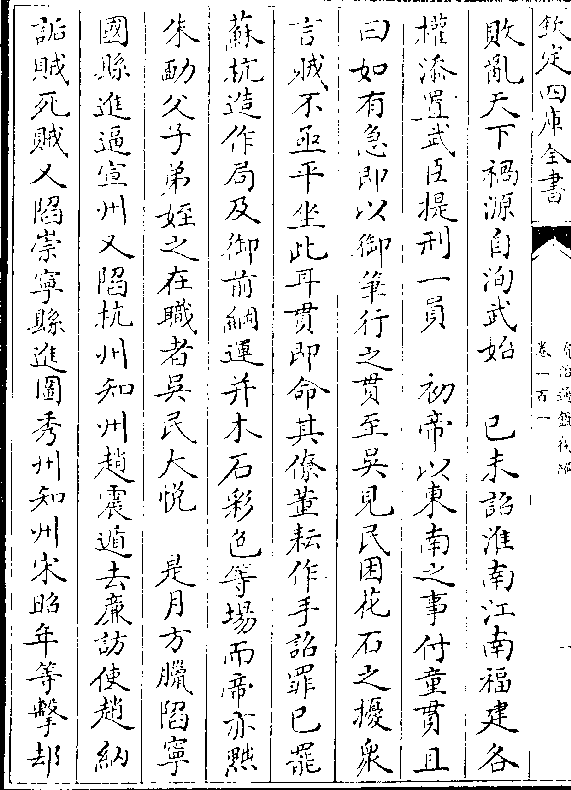 欽定四庫全書
卷一百一
敗亂天下禍源自洵武始　己未詔淮南江南福建各
權添置武臣提刑一員　初帝以東南之事付童貫且
曰如有急即以御筆行之貫至吳見民困花石之擾衆
言賊不亟平坐此耳貫即命其僚董耘作手詔罪已罷
蘇杭造作局及御前綱運并木石彩色等場而帝亦黜
朱勔父子弟姪之在職者吳民大悅　是月方臘陷寧
國縣進逼宣州又陷杭州知州趙震遁去廉訪使趙納
詬賊死賊又陷崇寧縣進圍秀州知州宋昭年等擊却